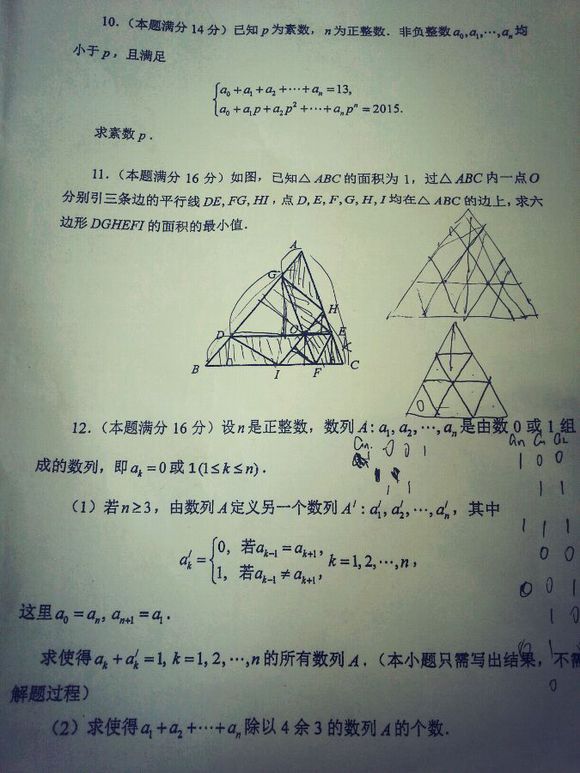 10.（本题满分 14 分）已知 p 为素数，n 为正整数．非负整数 a₀,a₁,⋯,aₙ 均
小于 p，且满足
a₀+a₁+a₂+⋯+aₙ=13,
a₀+a₁p+a₂p²+⋯+aₙpⁿ=2015.
求素数 p．
11.（本题满分 16 分）如图，已知△ABC 的面积为 1，过△ABC 内一点 O
分别引三条边的平行线 DE, FG, HI，点 D, E, F, G, H, I 均在△ABC 的边上，求六
边形 DGHEFI 的面积的最小值．
A
G
H
D
O
E
B
I
F
C
12.（本题满分 16 分）设 n 是正整数，数列 A: a₁, a₂, ⋯, aₙ 是由数 0 或 1 组
成的数列，即 aₖ=0 或 1(1≤k≤n)．
（1）若 n≥3，由数列 A 定义另一个数列 A′: a₁′, a₂′, ⋯, aₙ′，其中
aₖ′={0, 若aₖ₋₁=aₖ₊₁,
1, 若aₖ₋₁≠aₖ₊₁, k=1, 2, ⋯, n,
这里 a₀=aₙ, aₙ₊₁=a₁．
求使得 aₖ+aₖ′=1, k=1, 2, ⋯, n 的所有数列 A．（本小题只需写出结果，不需
解题过程）
（2）求使得 a₁+a₂+⋯+aₙ 除以 4 余 3 的数列 A 的个数．